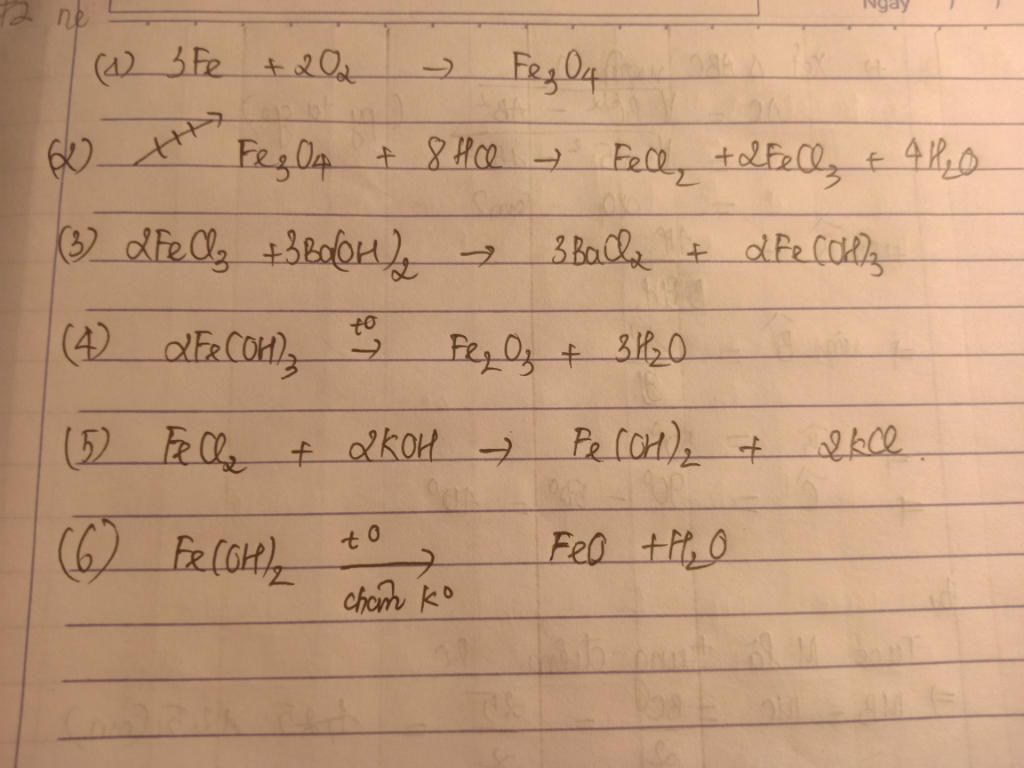 Ngày / /
(1) 3Fe + 2O₂ → Fe₃O₄
(2) Fe₃O₄ + 8HCl → FeCl₂ + 2FeCl₃ + 4H₂O
(3) 2FeCl₃ + 3Ba(OH)₂ → 3BaCl₂ + 2Fe(OH)₃
(4) 2Fe(OH)₃ t⁰→ Fe₂O₃ + 3H₂O
(5) FeCl₂ + 2KOH → Fe(OH)₂ + 2KCl.
(6) Fe(OH)₂ t⁰→ FeO + H₂O
chân k⁰